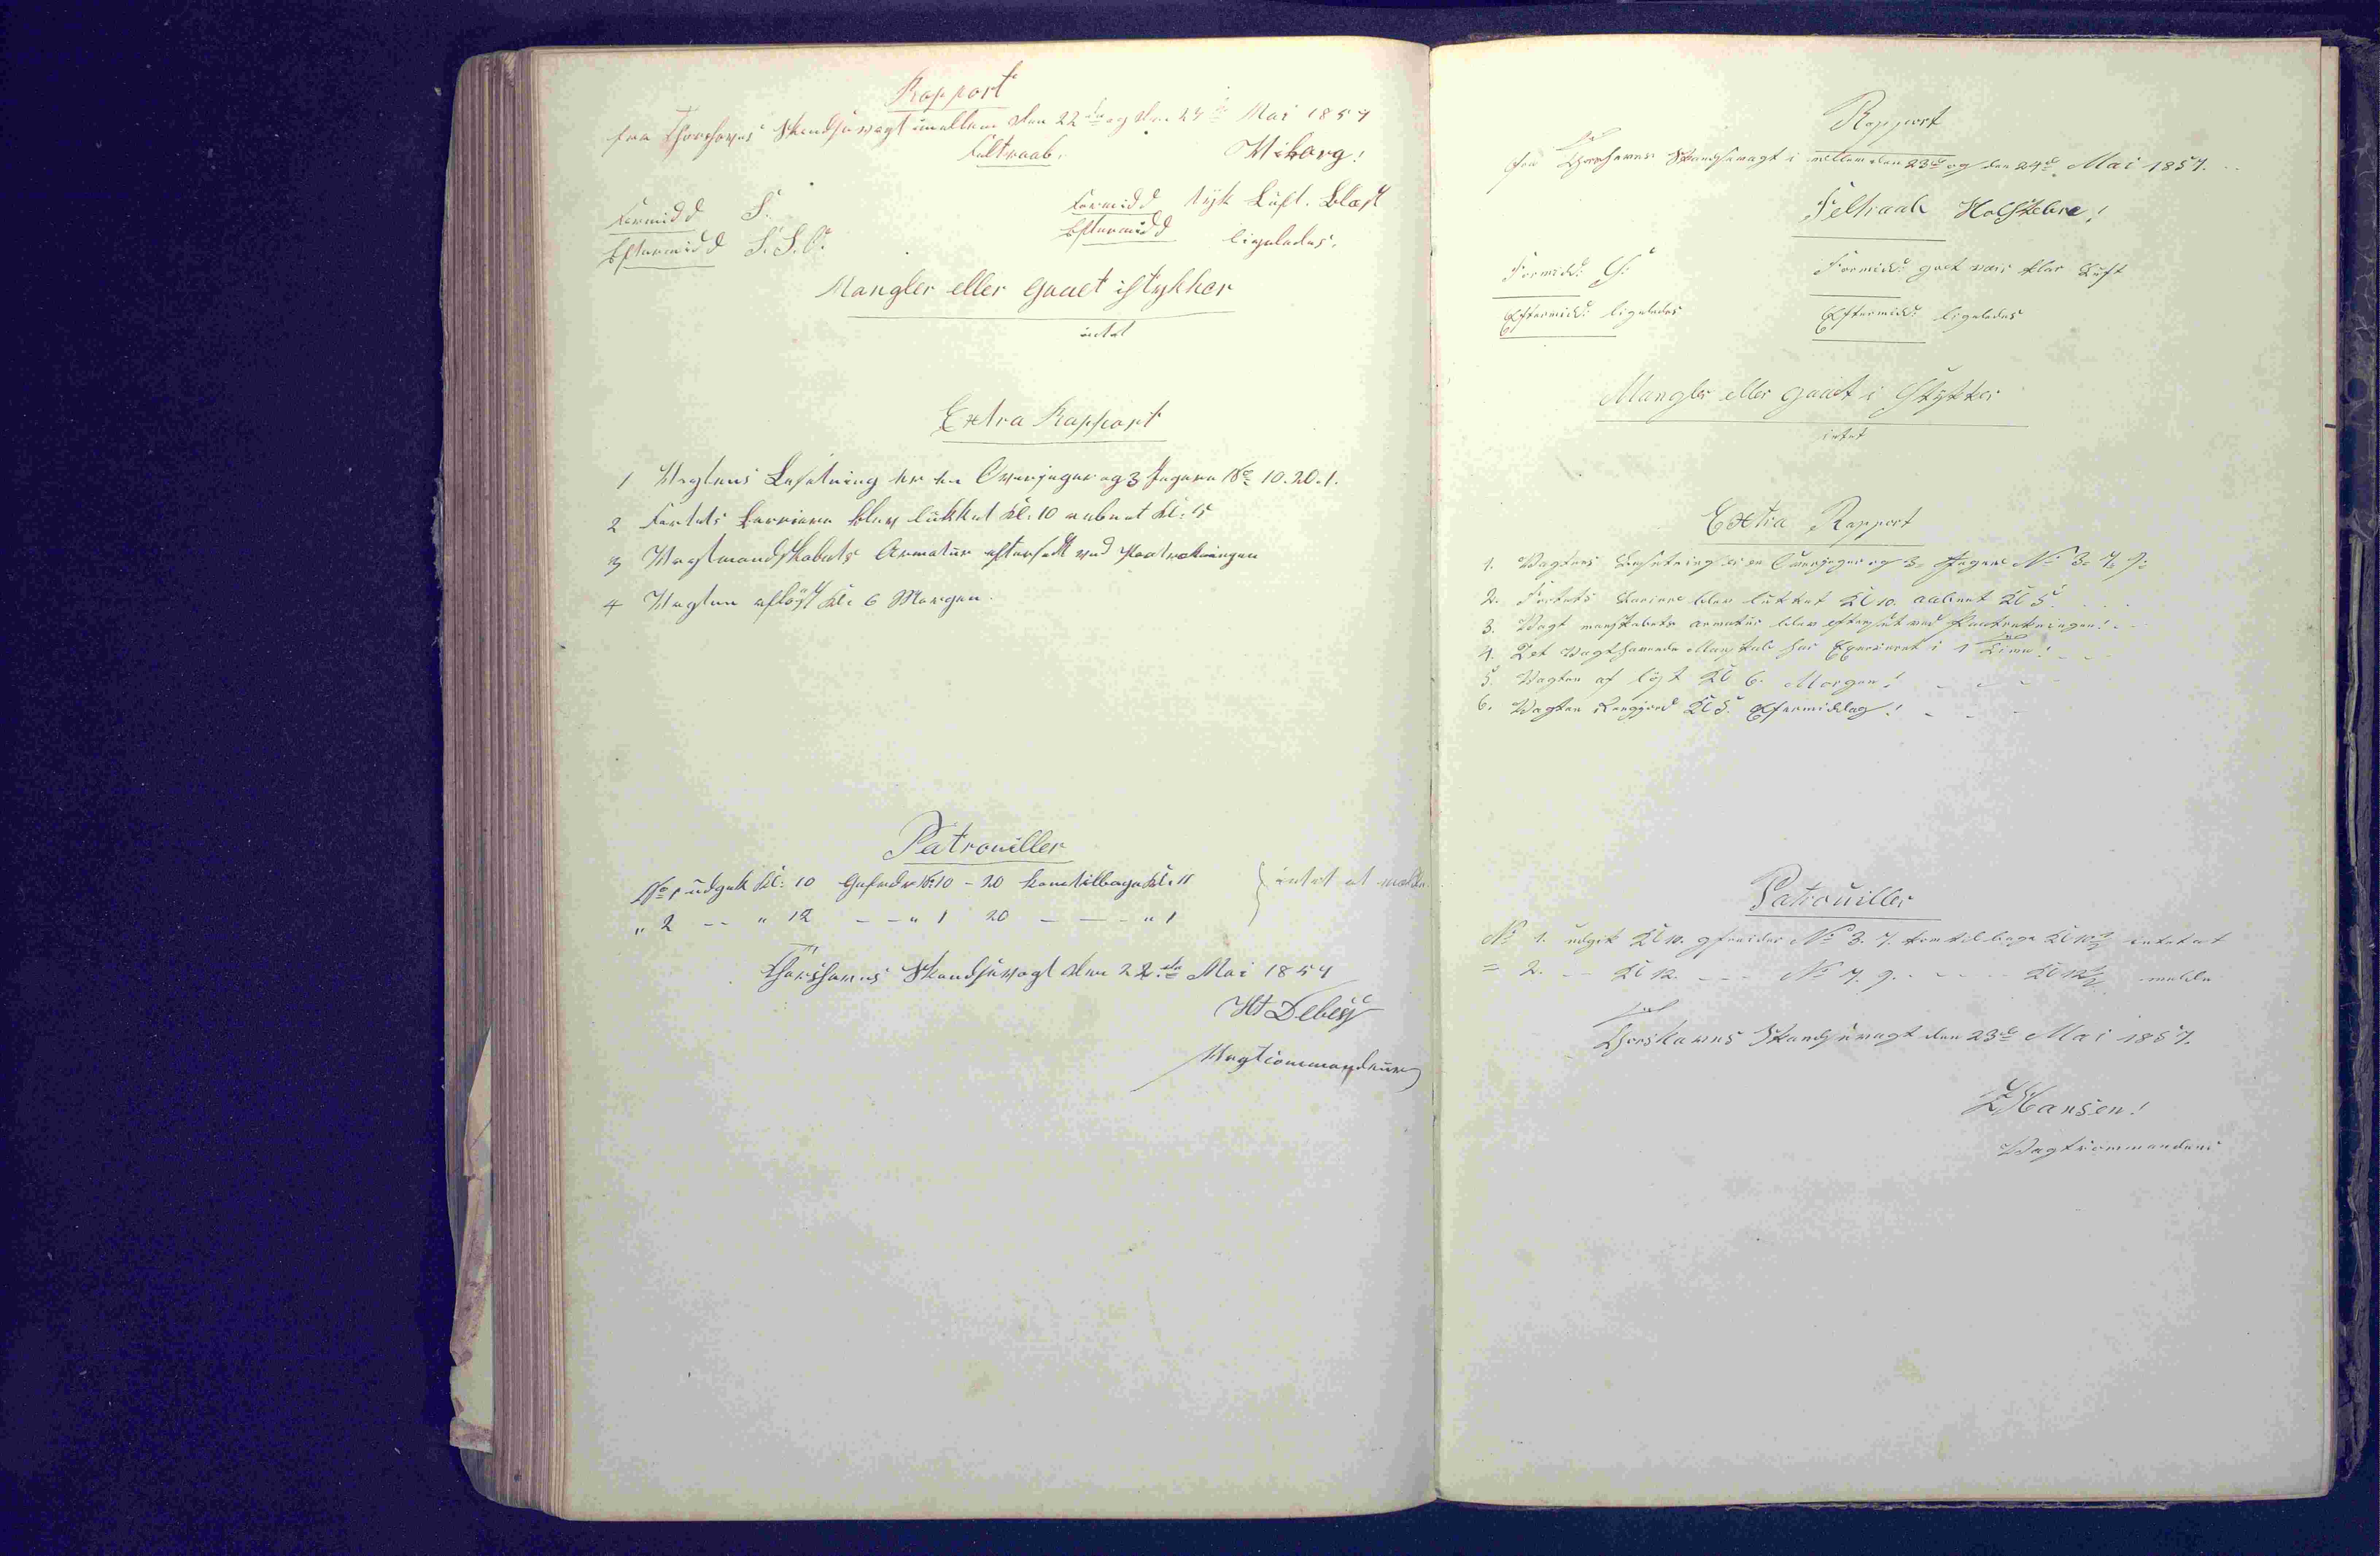 Rapport
fra Thorshavns Skandsevagt imellem den 22de og den 23de Mai 1857
Feltraab. Wiborg!
Formidd S. Formidd tyk Luft. Blæst
Eftermidd S.S.O. Eftermidd ligeledes.
Mangler eller gaaet istykker
intet
Extra Rapport
1 Vagtens Besetning er en Overjeger og 3 Jegere No 10. 20. 1.
2 Fortets Barriere blev lukket Kl: 10 aabnet Kl: 5
3 Vagtmandskabets Armatur efterseet ved Paatrækningen
4 Vagten afløst Kl: 6 Morgen.
Patrouiller
No 1 udgik Kl: 10 Gefreider No 10 - 20 kom tilbage Kl: 11 } intet at melde.
" 2 -- " 12 -- " 1 20 -- -- " 1
Thorshavns Skandsevagt den 22de Mai 1857
Debess
Vagtcommandeur
Rapport
fra Thorshavns Skandsevagt i mellem den 23de og den 24de Mai 1857.
Feltraab Holstebro!
Formidd: S: Formidd: godt veir klar Luft
Eftermidd: ligeledes Eftermidd: ligeledes
Mangler eller gaaet i Stykker
intet
Extra Rapport
1. Vagtens Besetning er en Overjeger og 3. Jegere No 3. 7. 9.
2. Fortets Bariere blev lukket Kl 10. aabnet Kl 5.
3. Vagt manskabets armatur blev efterseet ved Paatrækningen!
4. Det Vagthavende Manskab har Exerseret i 1 Time!
5. Vagten af løst Kl 6. Morgen!
6. Vagten Rengjord Kl 5. Efermiddag!
Patrouiller
No 1. udgik Kl 10. gfreider No 3. 7. kom tilbage Kl 10½ intet at
= 2. -- Kl 12. -- No 7. 9. -- Kl 12½ melde
Thorshavns Skandsevagt den 23de Mai 1857.
Hansen!
Vagtcommandeur